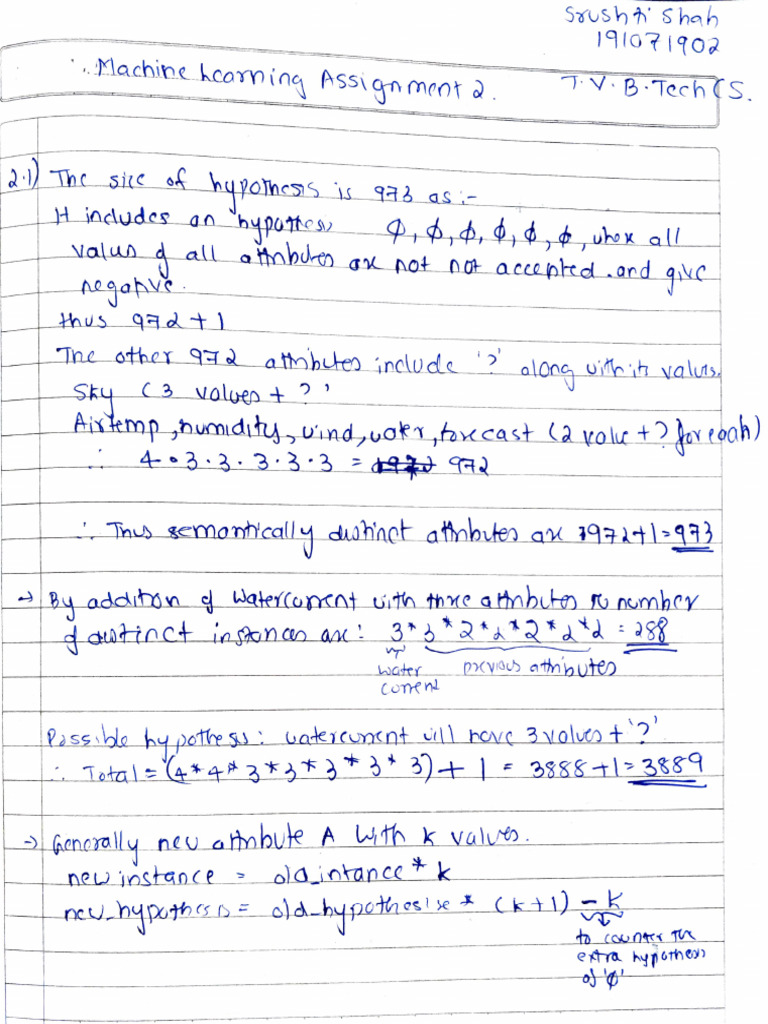 Srushti Shah
191071902
∴ Machine Learning Assignment 2.
T.Y.B.Tech CS.
2.1) The size of hypothesis is 973 as :-
It includes an hypothes φ, φ, φ, φ, φ, φ, where all
values of all attributes are not not accepted. and give
negative.
thus 972 + 1
The other 972 attributes include '?' along with its values.
Sky ( 3 values + ? '
Airtemp, humidity, wind, water, forecast (2 value + ? for each)
∴ 4 • 3 • 3 • 3 • 3 • 3 = 972
∴ Thus semantically distinct attributes are 972+1=973
→ By addition of Watercurrent with three attributes to number
of distinct instances are: 3 * 3 * 2 * 2 * 2 * 2 * 2 = 288
water current
previous attributes
Possible hypothesis: watercurrent will have 3 values + '?'
∴ Total = (4 * 4 * 3 * 3 * 3 * 3 * 3) + 1 = 3888 + 1 = 3889
→ Generally new attribute A with k values.
new instance = old_intance * k
new_hypothesis = old_hypothesise * (k+1) - k
to counter the
extra hypothesis
of 'φ'